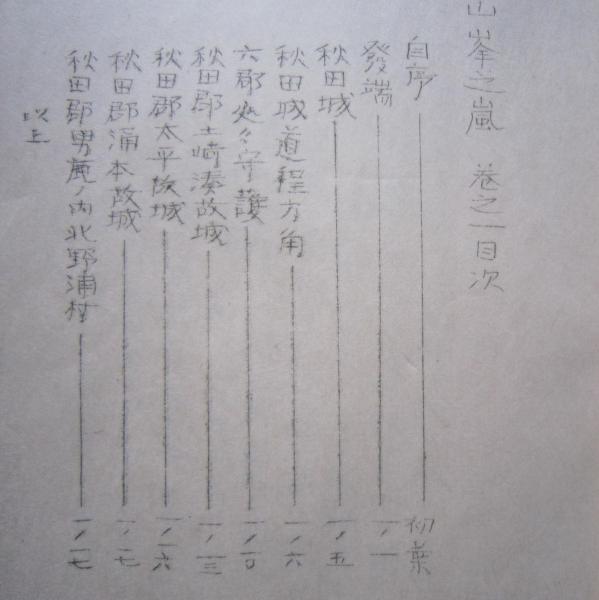 山峯之嵐 巻之一目次
自序 初葉
發端 一ノ一
秋田城 一ノ五
秋田城道程方角 一ノ六
六郡処々守護 一ノ一〇
秋田郡土崎湊故城 一ノ一三
秋田郡太平故城 一ノ一六
秋田郡涌本故城 一ノ一七
秋田郡男鹿ノ内北野浦村 一ノ一七
以上